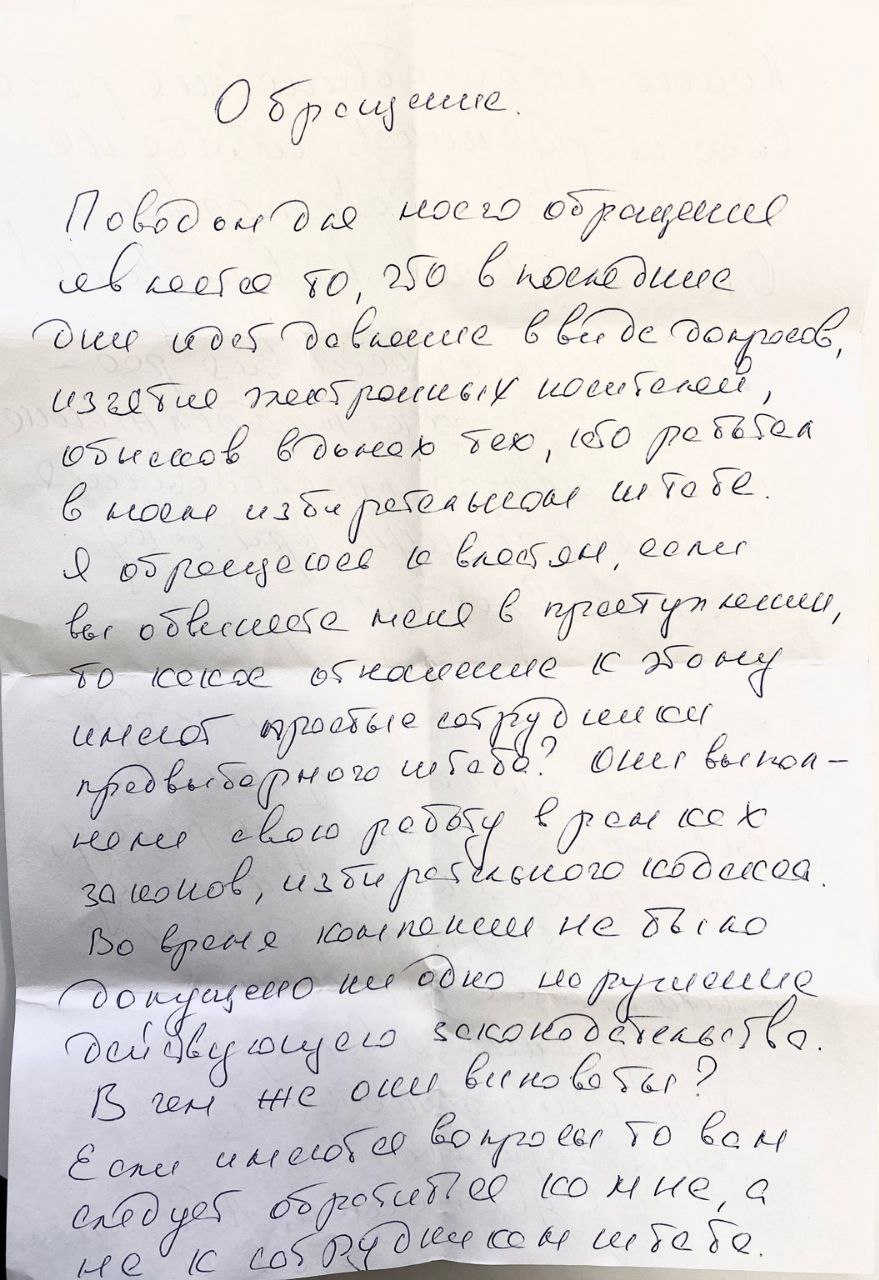 Обращение.
Поводом для моего обращения
является то, что в последние
дни идет давление в виде допросов,
изъятие электронных носителей,
обысков в домах тех, кто работал
в моем избирательном штабе.
Я обращаюсь к властям, если
вы обвиняете меня в преступлении,
то какое отношение к этому
имеют простые сотрудники
предвыборного штаба? Они выпол-
няли свою работу в рамках
законов, избирательного кодекса.
Во время компании не было
допущено ни одно нарушение
действующего законодательства.
В чем же они виноваты?
Если имеются вопросы то вам
следует обратиться ко мне, а
не к сотрудникам штаба.